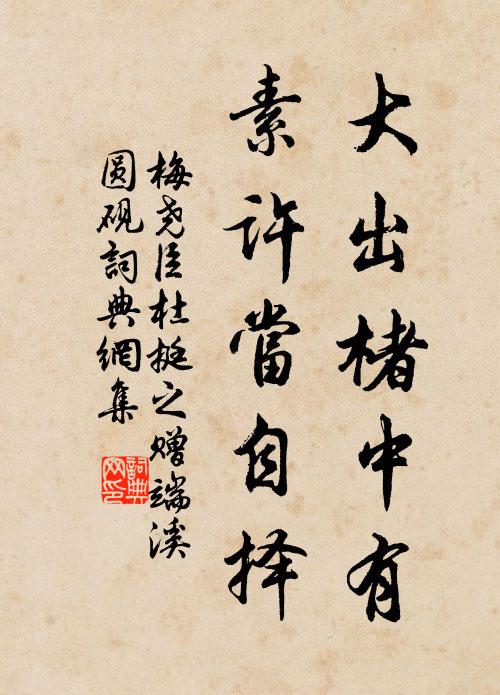 大出楮中有
素许當自择
梅尧臣杜挺之赠端溪
圆砚詞典網集
詞典
网印